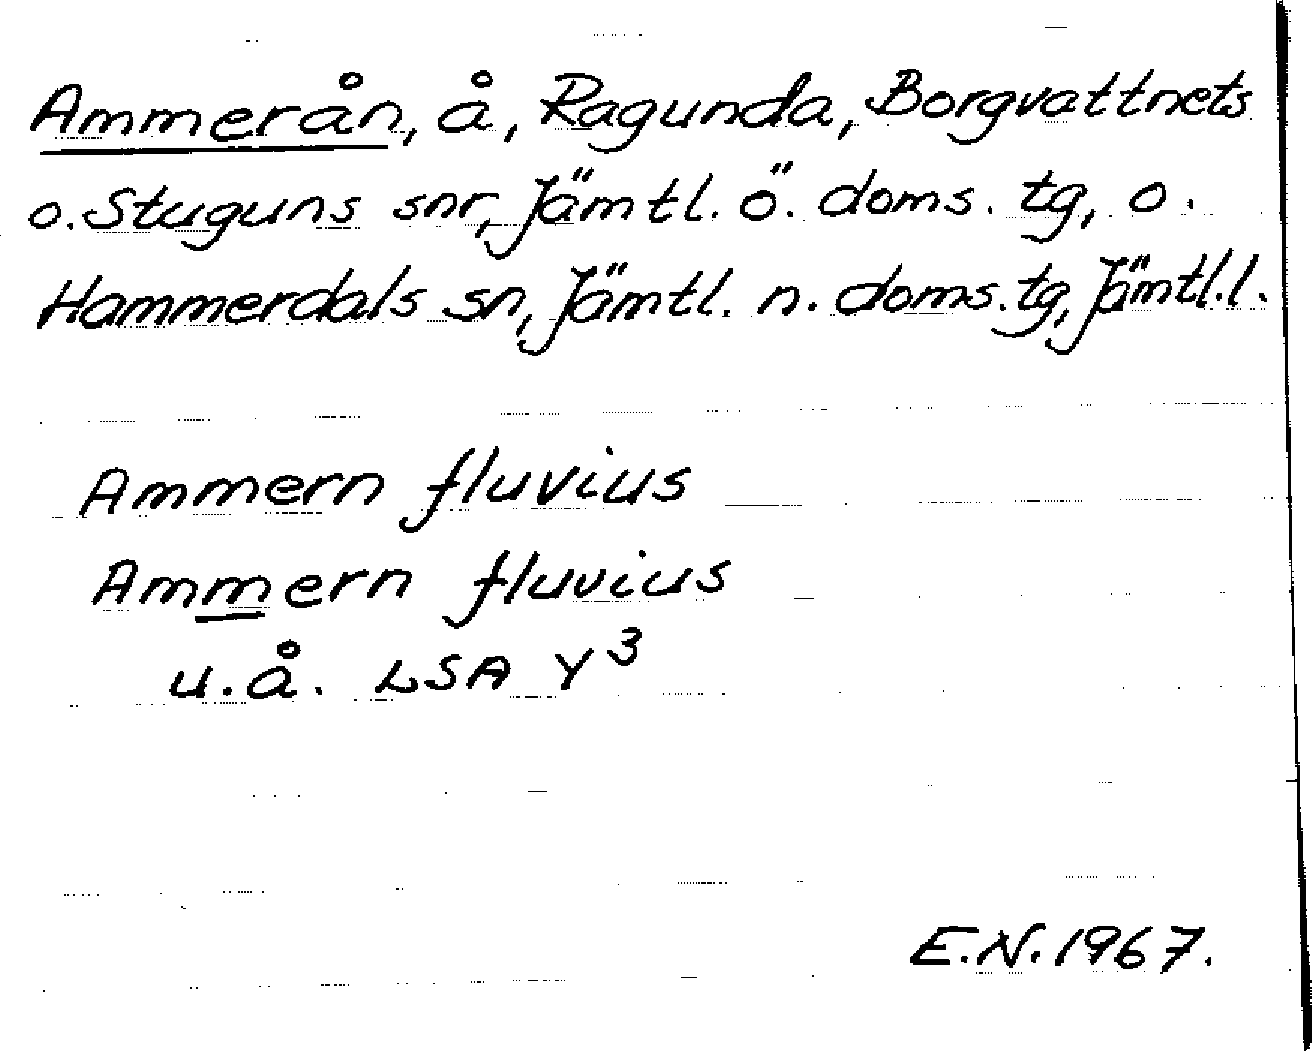 Ammerån, å, Ragunda, Borgvattnets
o. Stuguns snr, Jämtl. ö. doms. tg, o.
Hammerdals sn, Jämtl. n. doms. tg, Jämtl. l.
Ammern fluvius
Ammern fluvius
u. å. LSA Y³
E.N. 1967.